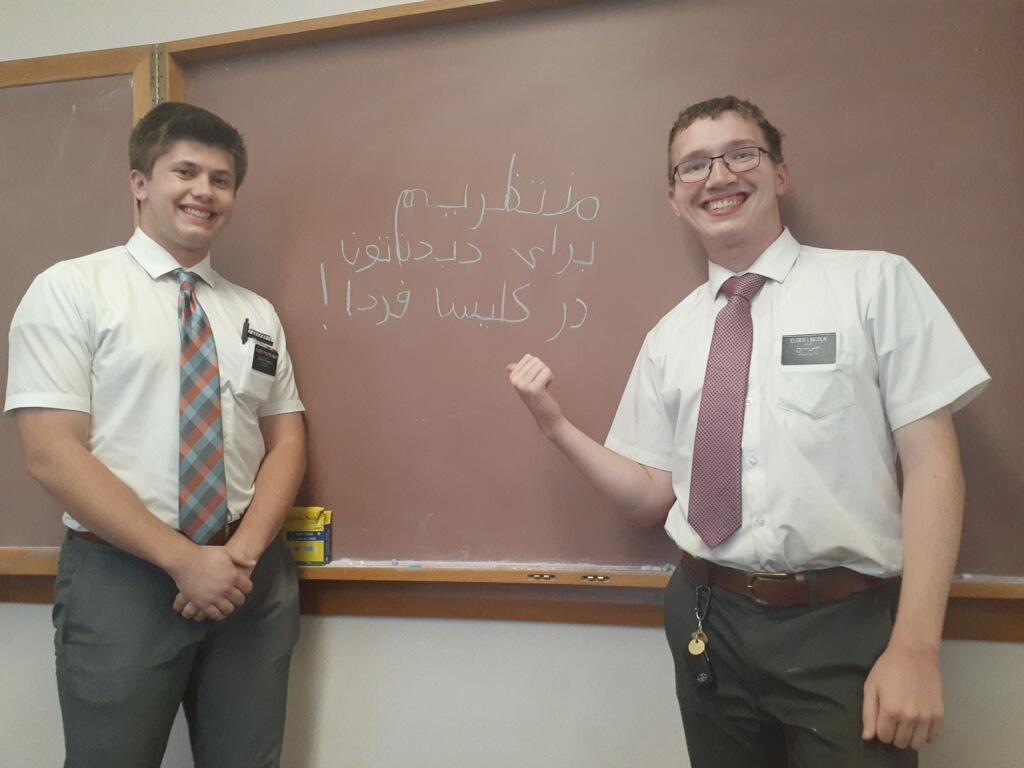 منتظریم
برای دیدناتون
در کلیسا فردا!
ELDER LINCOLN
عیسی مسیح